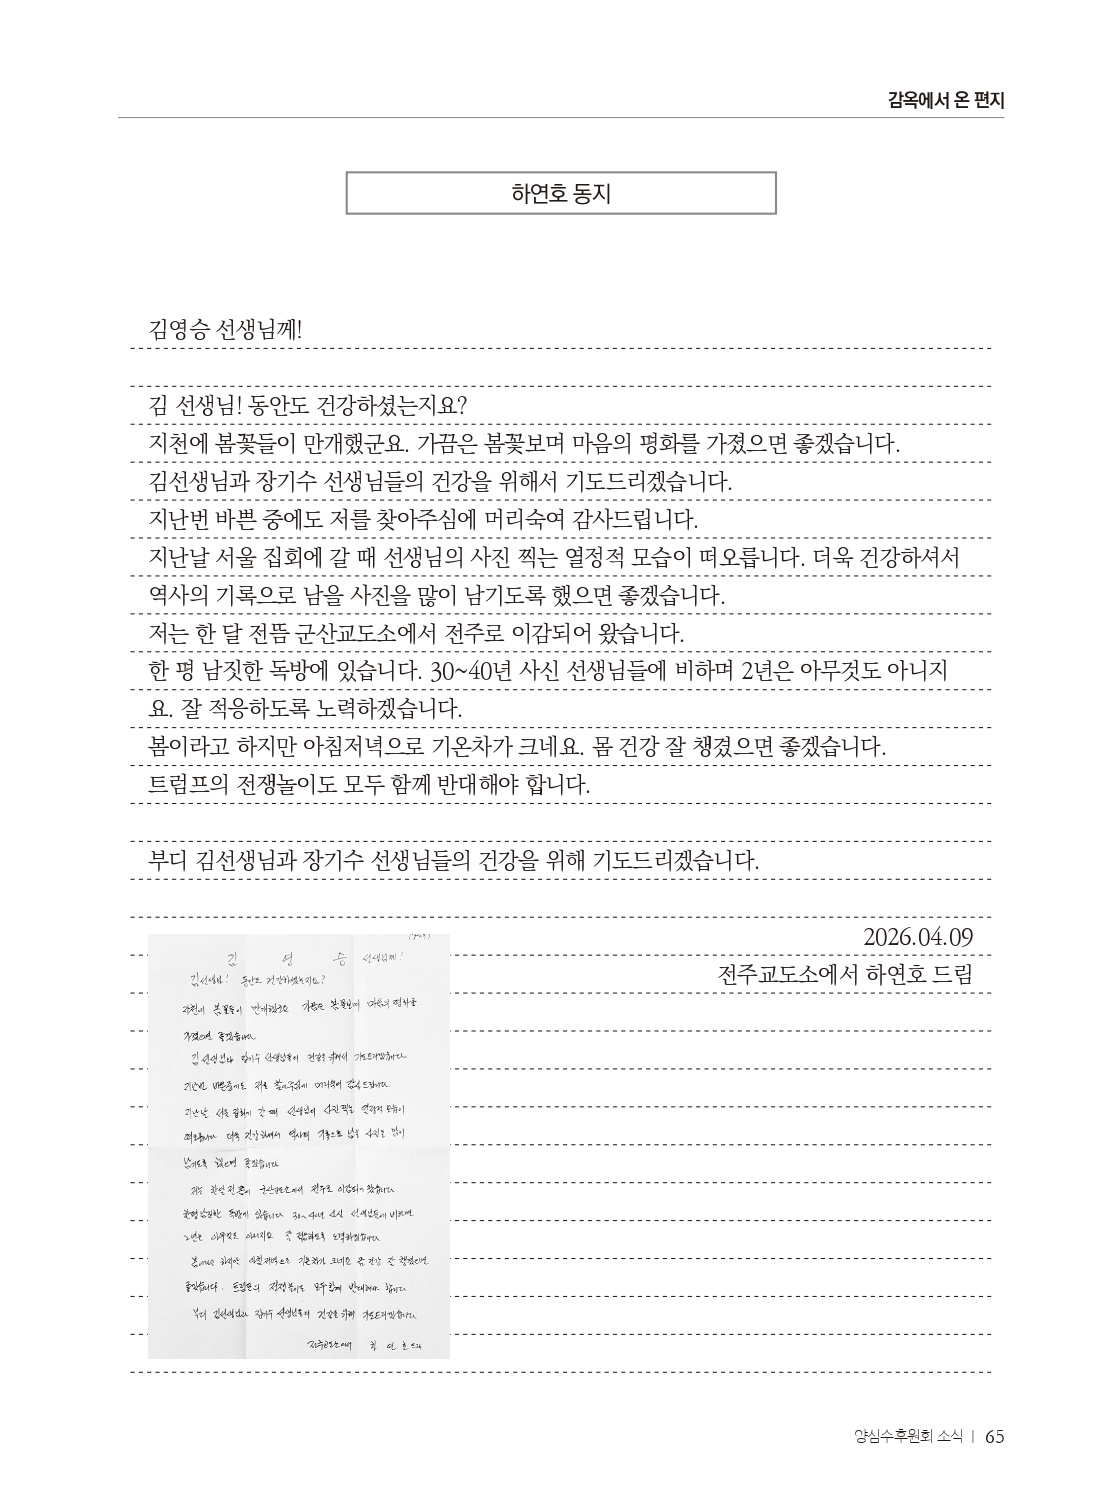 감옥에서 온 편지
하연호 동지
김영승 선생님께!
김 선생님! 동안도 건강하셨는지요?
지천에 봄꽃들이 만개했군요. 가끔은 봄꽃보며 마음의 평화를 가졌으면 좋겠습니다.
김선생님과 장기수 선생님들의 건강을 위해서 기도드리겠습니다.
지난번 바쁜 중에도 저를 찾아주심에 머리숙여 감사드립니다.
지난날 서울 집회에 갈 때 선생님의 사진 찍는 열정적 모습이 떠오릅니다. 더욱 건강하셔서
역사의 기록으로 남을 사진을 많이 남기도록 했으면 좋겠습니다.
저는 한 달 전뜸 군산교도소에서 전주로 이감되어 왔습니다.
한 평 남짓한 독방에 있습니다. 30~40년 사신 선생님들에 비하며 2년은 아무것도 아니지
요. 잘 적응하도록 노력하겠습니다.
봄이라고 하지만 아침저녁으로 기온차가 크네요. 몸 건강 잘 챙겼으면 좋겠습니다.
트럼프의 전쟁놀이도 모두 함께 반대해야 합니다.
부디 김선생님과 장기수 선생님들의 건강을 위해 기도드리겠습니다.
2026.04.09
전주교도소에서 하연호 드림
김 영 승 선생님께!
김선생님! 동안도 건강하셨는지요?
지천에 봄꽃들이 만개했군요 가끔은 봄꽃보며 마음의 평화를
가졌으면 좋겠습니다
김선생님과 장기수 선생님들의 건강을 위해서 기도드리겠습니다
지난번 바쁜중에도 저를 찾아주심에 머리숙여 감사드립니다
지난날 서울 집회에 갈 때 선생님의 사진 찍는 열정적 모습이
떠오릅니다 더욱 건강하셔서 역사의 기록으로 남을 사진을 많이
남기도록 했으면 좋겠습니다
저는 한달 전쯤 군산교도소에서 전주로 이감되어 왔습니다
한평남짓한 독방에 있습니다 30~40년 사신 선생님들에 비하면
2년은 아무것도 아니지요 잘 적응하도록 노력하겠습니다
봄이라고 하지만 아침저녁으로 기온차가 크네요 몸 건강 잘 챙겼으면
좋겠습니다. 트럼프의 전쟁놀이도 모두함께 반대해야 합니다
부디 김선생님과 장기수 선생님들의 건강을 위해 기도드리겠습니다
전주교도소에서 하 연 호 드림
양심수후원회 소식 | 65